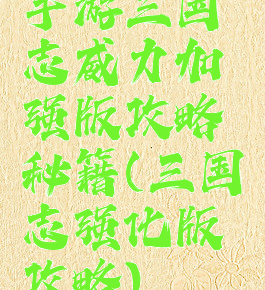 手游三国
志威力加
强版攻略
秘籍(三国
志强化版
攻略)